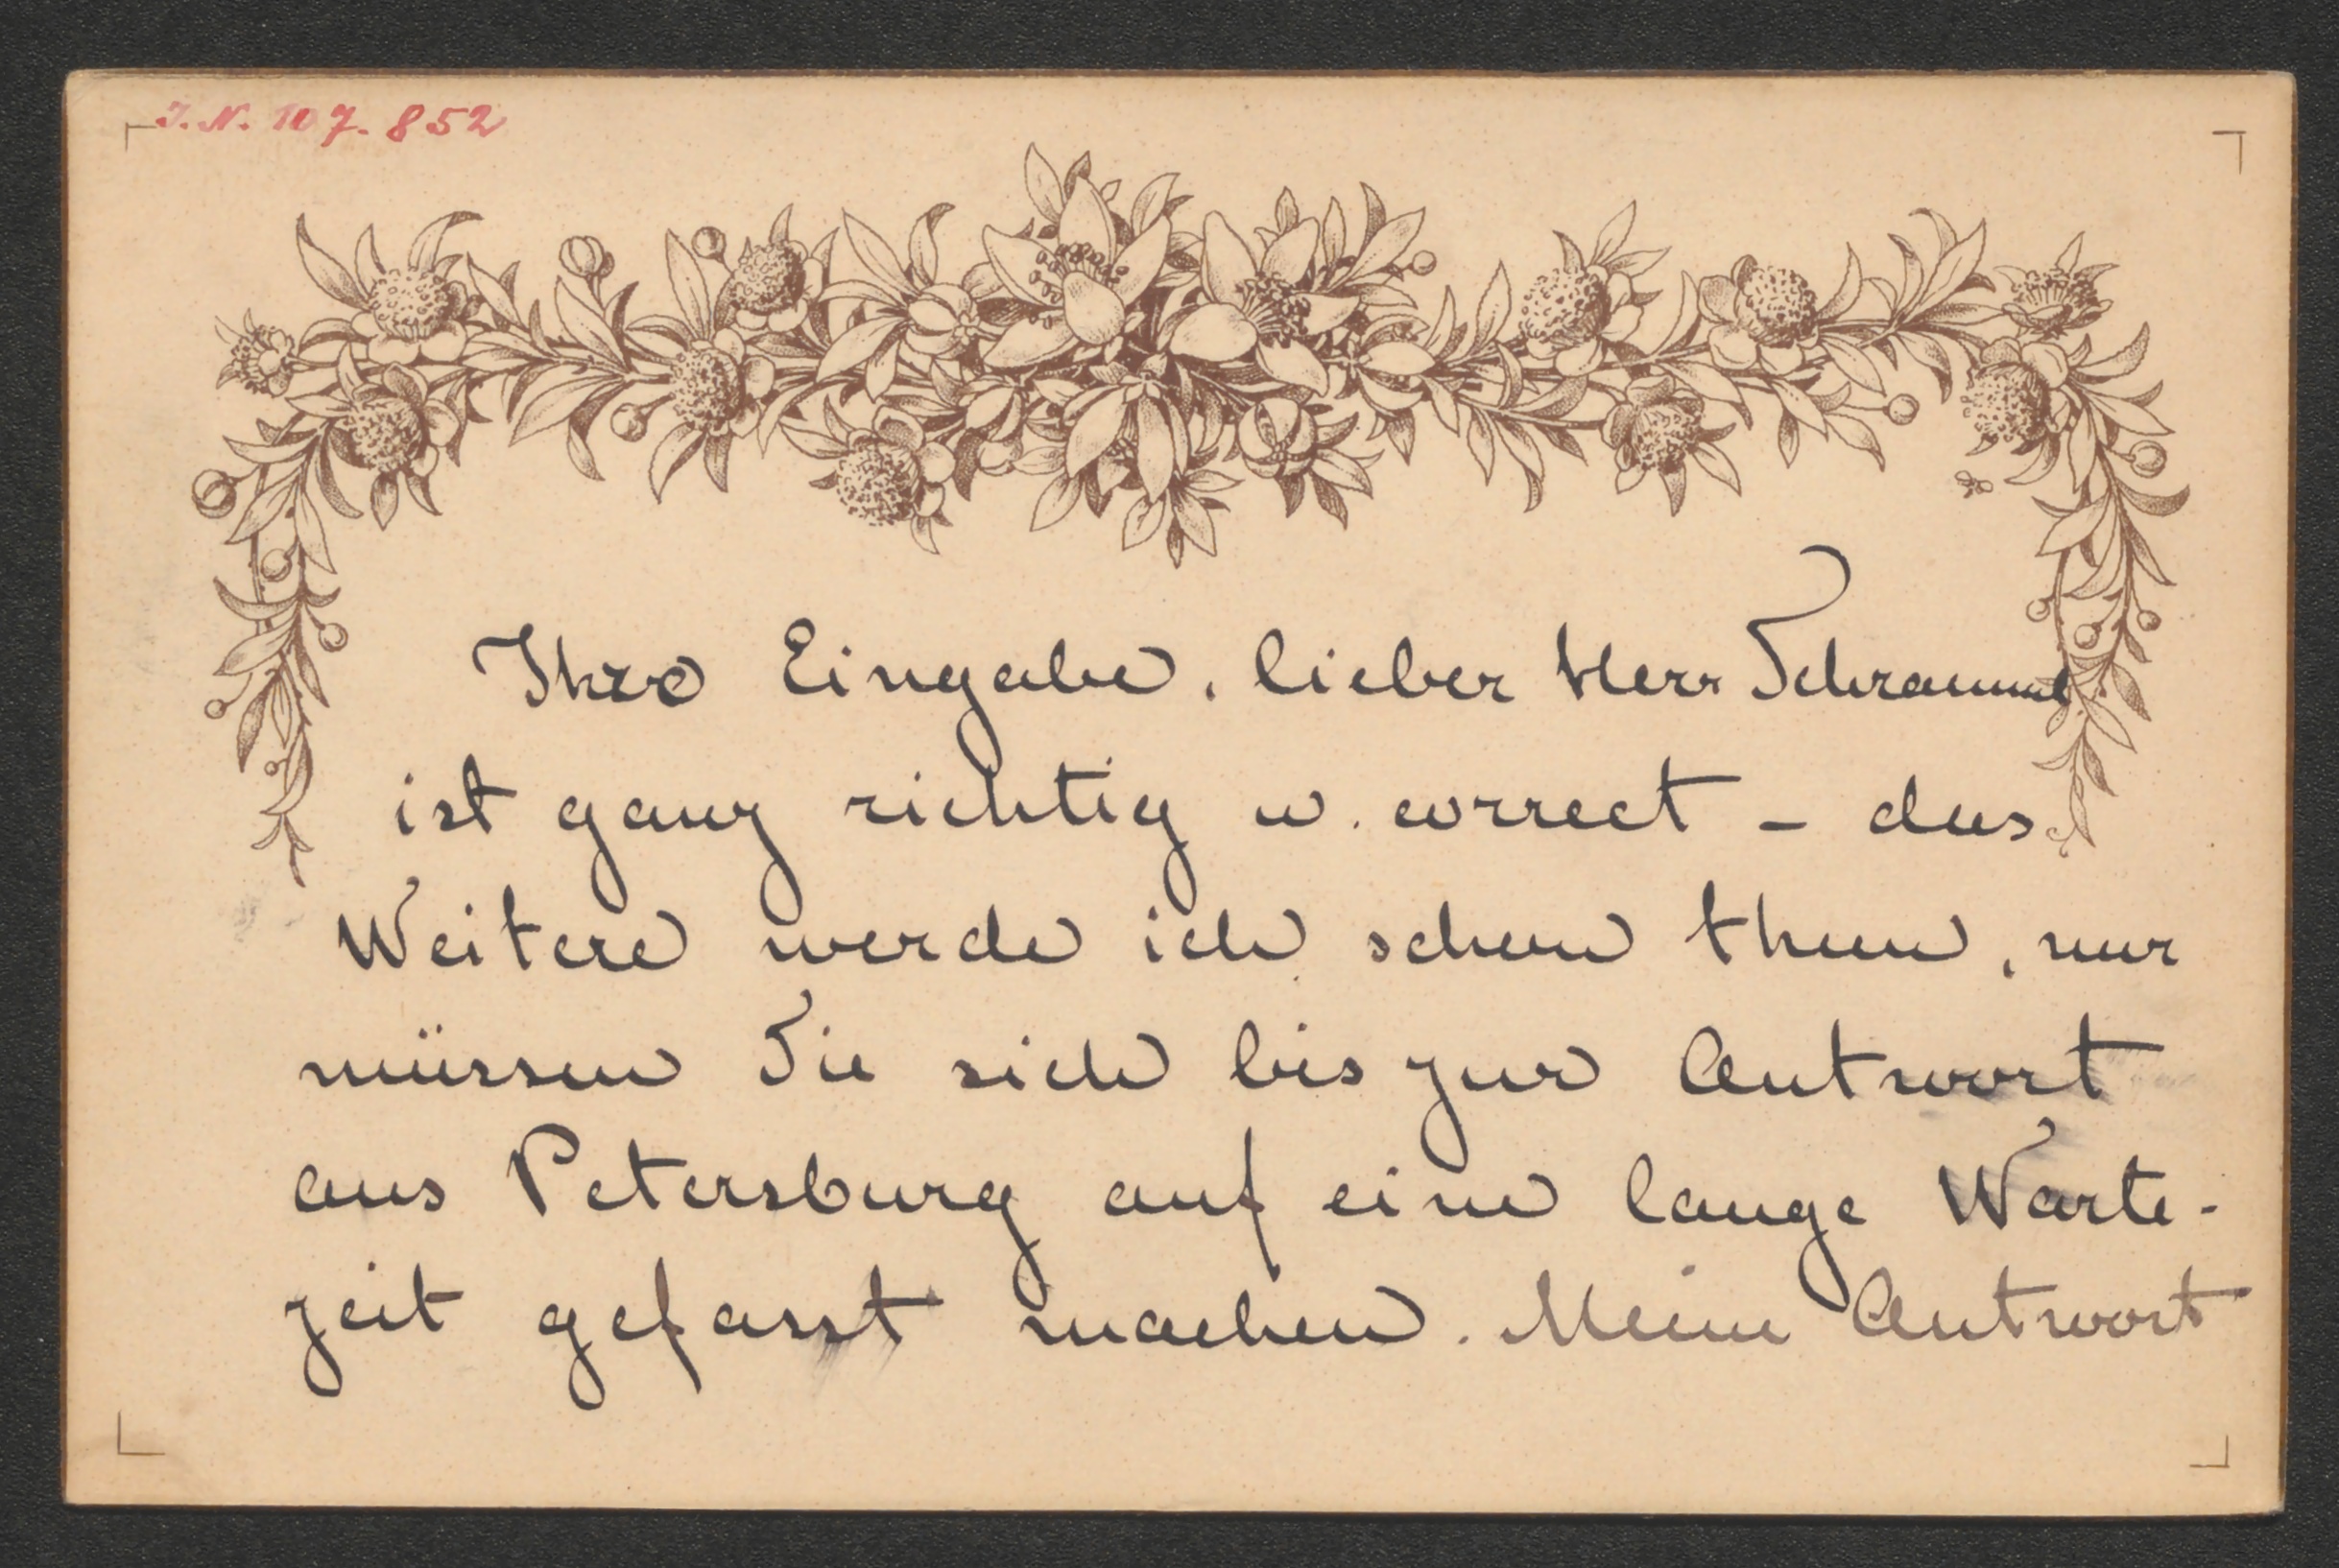 I.N. 107.852
Ihre Eingabe, lieber Herr Schrammel
ist ganz richtig u. correct – das
Weitere werde ich schon thun, nur
müssen Sie sich bis zur Antwort
aus Petersburg auf eine lange Warte-
zeit gefasst machen. Meine Antwort